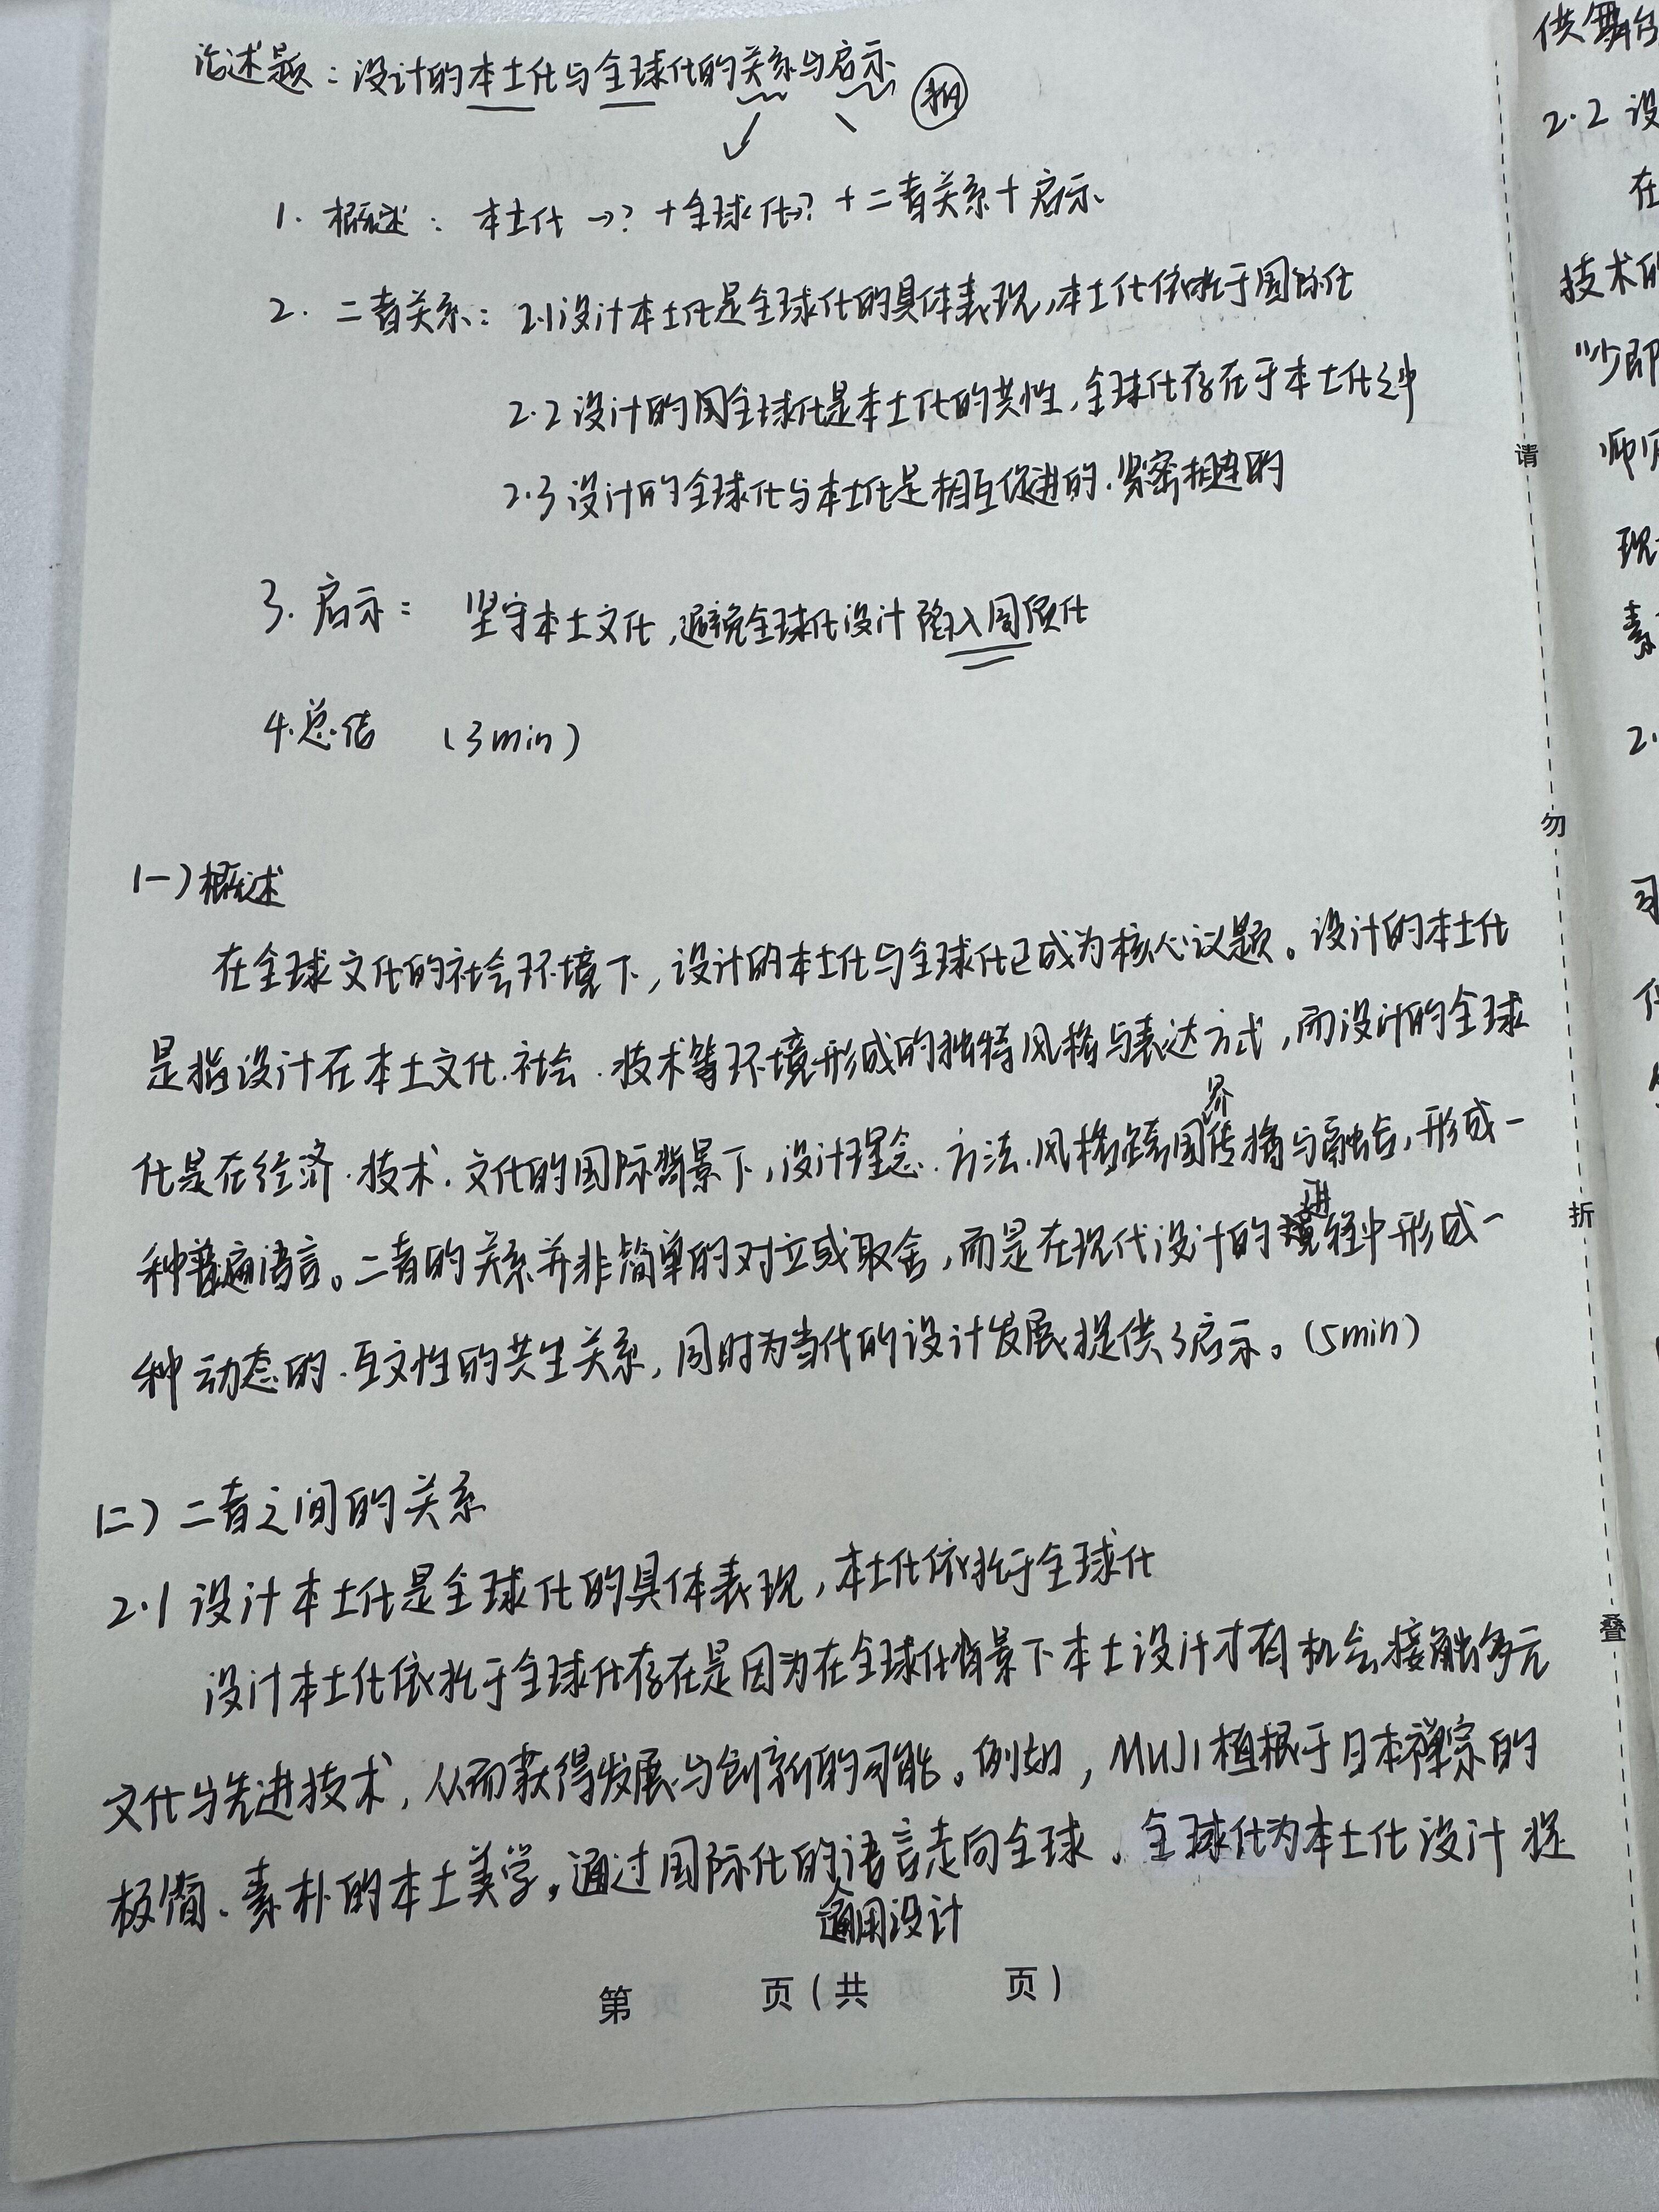 论述题：设计的本土化与全球化的关系与启示
1. 概述： 本土化→？+全球化→？+二者关系+启示
2. 二者关系：2.1设计本土化是全球化的具体表现，本土化依托于国际化
2.2 设计的全球化是本土化的共性，全球化存在于本土化之中
2.3 设计的全球化与本土化是相互促进的、紧密相连的
3. 启示： 坚守本土文化，避免全球化设计陷入同质化
4.总结 (3min)
(一) 概述
在全球文化的社会环境下，设计的本土化与全球化已成为核心议题。设计的本土化
是指设计在本土文化、社会、技术等环境形成的独特风格与表达方式，而设计的全球
化是在经济、技术、文化的国际背景下，设计理念、方法、风格跨国界传播与融合，形成一
种普遍语言。二者的关系并非简单的对立或取舍，而是在现代设计的进程中形成一
种动态的、互文性的共生关系，同时为当代的设计发展提供了启示。(5min)
(二) 二者之间的关系
2.1 设计本土化是全球化的具体表现，本土化依托于全球化
设计本土化依托于全球化存在是因为在全球化背景下本土设计才有机会接触多元
文化与先进技术，从而获得发展与创新的可能。例如，MUJI植根于日本禅宗的
极简、素朴的本土美学，通过国际化的语言走向全球。全球化为本土化设计提
通用设计
第 页(共 页)
请
勿
折
叠
供舞台
2.2 设
在
技术的
"少即
师
现
素
2.